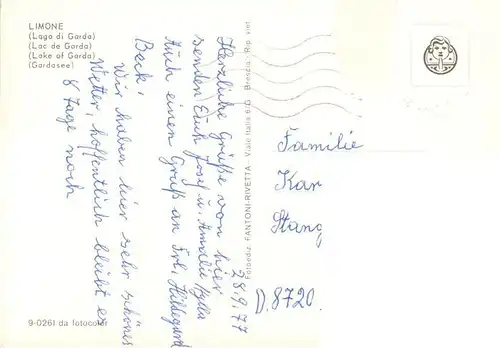 LIMONE
(Lago di Garda)
(Lac de Garda)
(Lake of Garda)
(Gardasee)
28.9.77
Herzliche Grüße von hier
senden Euch Josef u. Amalie
Auch einen Gruß an Frl. Hildegard
Back.
Wir haben hier sehr schönes
Wetter, hoffentlich bleibt es
8 Tage noch
9-0261 da fotocolor
Fotoediz. FANTONI-RIVETTA - Viale Italia 6/D - Brescia - Rip. viet.
Familie
Kar
Stang
D. 8720